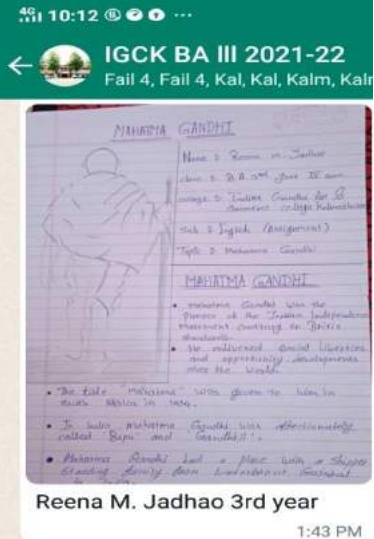 4G 10:12
IGCK BA III 2021-22
Fail 4, Fail 4, Kal, Kal, Kalm, Kalm
MAHATMA GANDHI
Name :- Reena M. Jadhao
class :- B.A 3rd year IV sem
college :- Indira Gandhi Art &
commerce college Kalmeshwar
Sub :- English (Assignment)
Topic :- Mahatma Gandhi
MAHATMA GANDHI
• Mahatma Gandhi was the
pioneer of the Indian Independence
movement
• He social liberties
and opportunity developments
over the world.
• The title "mahatma" was given to him in
South Africa in
• In India mahatma Gandhi was affectionately
called "Bapu" and "Gandhiji".
• Mahatma Gandhi had a place with a
family from Gujarat
Reena M. Jadhao 3rd year
1:43 PM